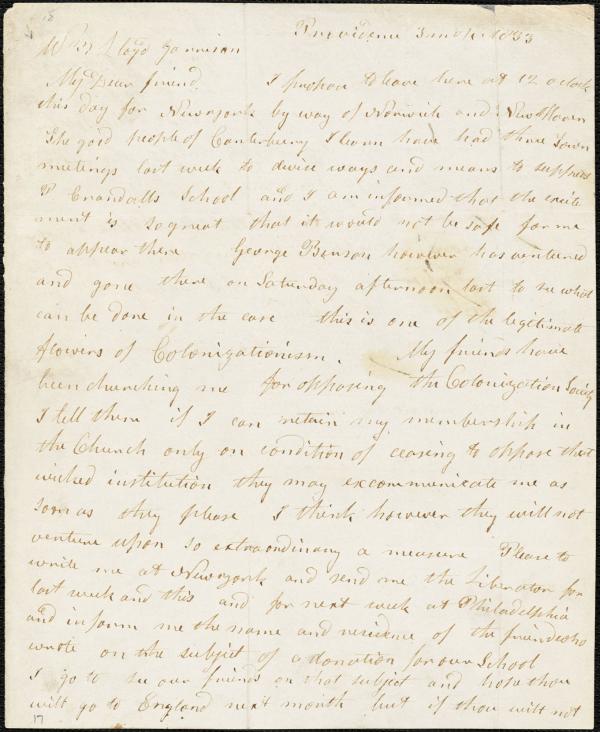 18
Providence 3 mo 4. 1833
Wm Lloyd Garrison
My Dear friend I propose to leave here at 12 oclock
this day for Newyork by way of Norwich and New Haven
The good people of Canterbury I learn have had three Town
meetings last week to devise ways and means to suppress
P Crandalls School and I am informed that the excite
ment is so great that it would not be safe for me
to appear there George Benson however has ventured
and gone there on Saturday afternoon last to see what
can be done in the case this is one of the legitimate
flowers of Colonizationism. My friends have
been churching me for opposing the Colonization Society
I tell them if I can retain my membership in
the Church only on condition of ceasing to oppose that
wicked institution they may excommunicate me as
soon as they please I think however they will not
venture upon so extraordinary a measure Please to
write me at Newyork and send me the Liberator for
last week and this and for next week at Philadelphia
and inform me the name and residence of the friend who
wrote on the subject of a donation for our School
I go to see our friends on that subject and hope thou
will go to England next month but if thou will not
17